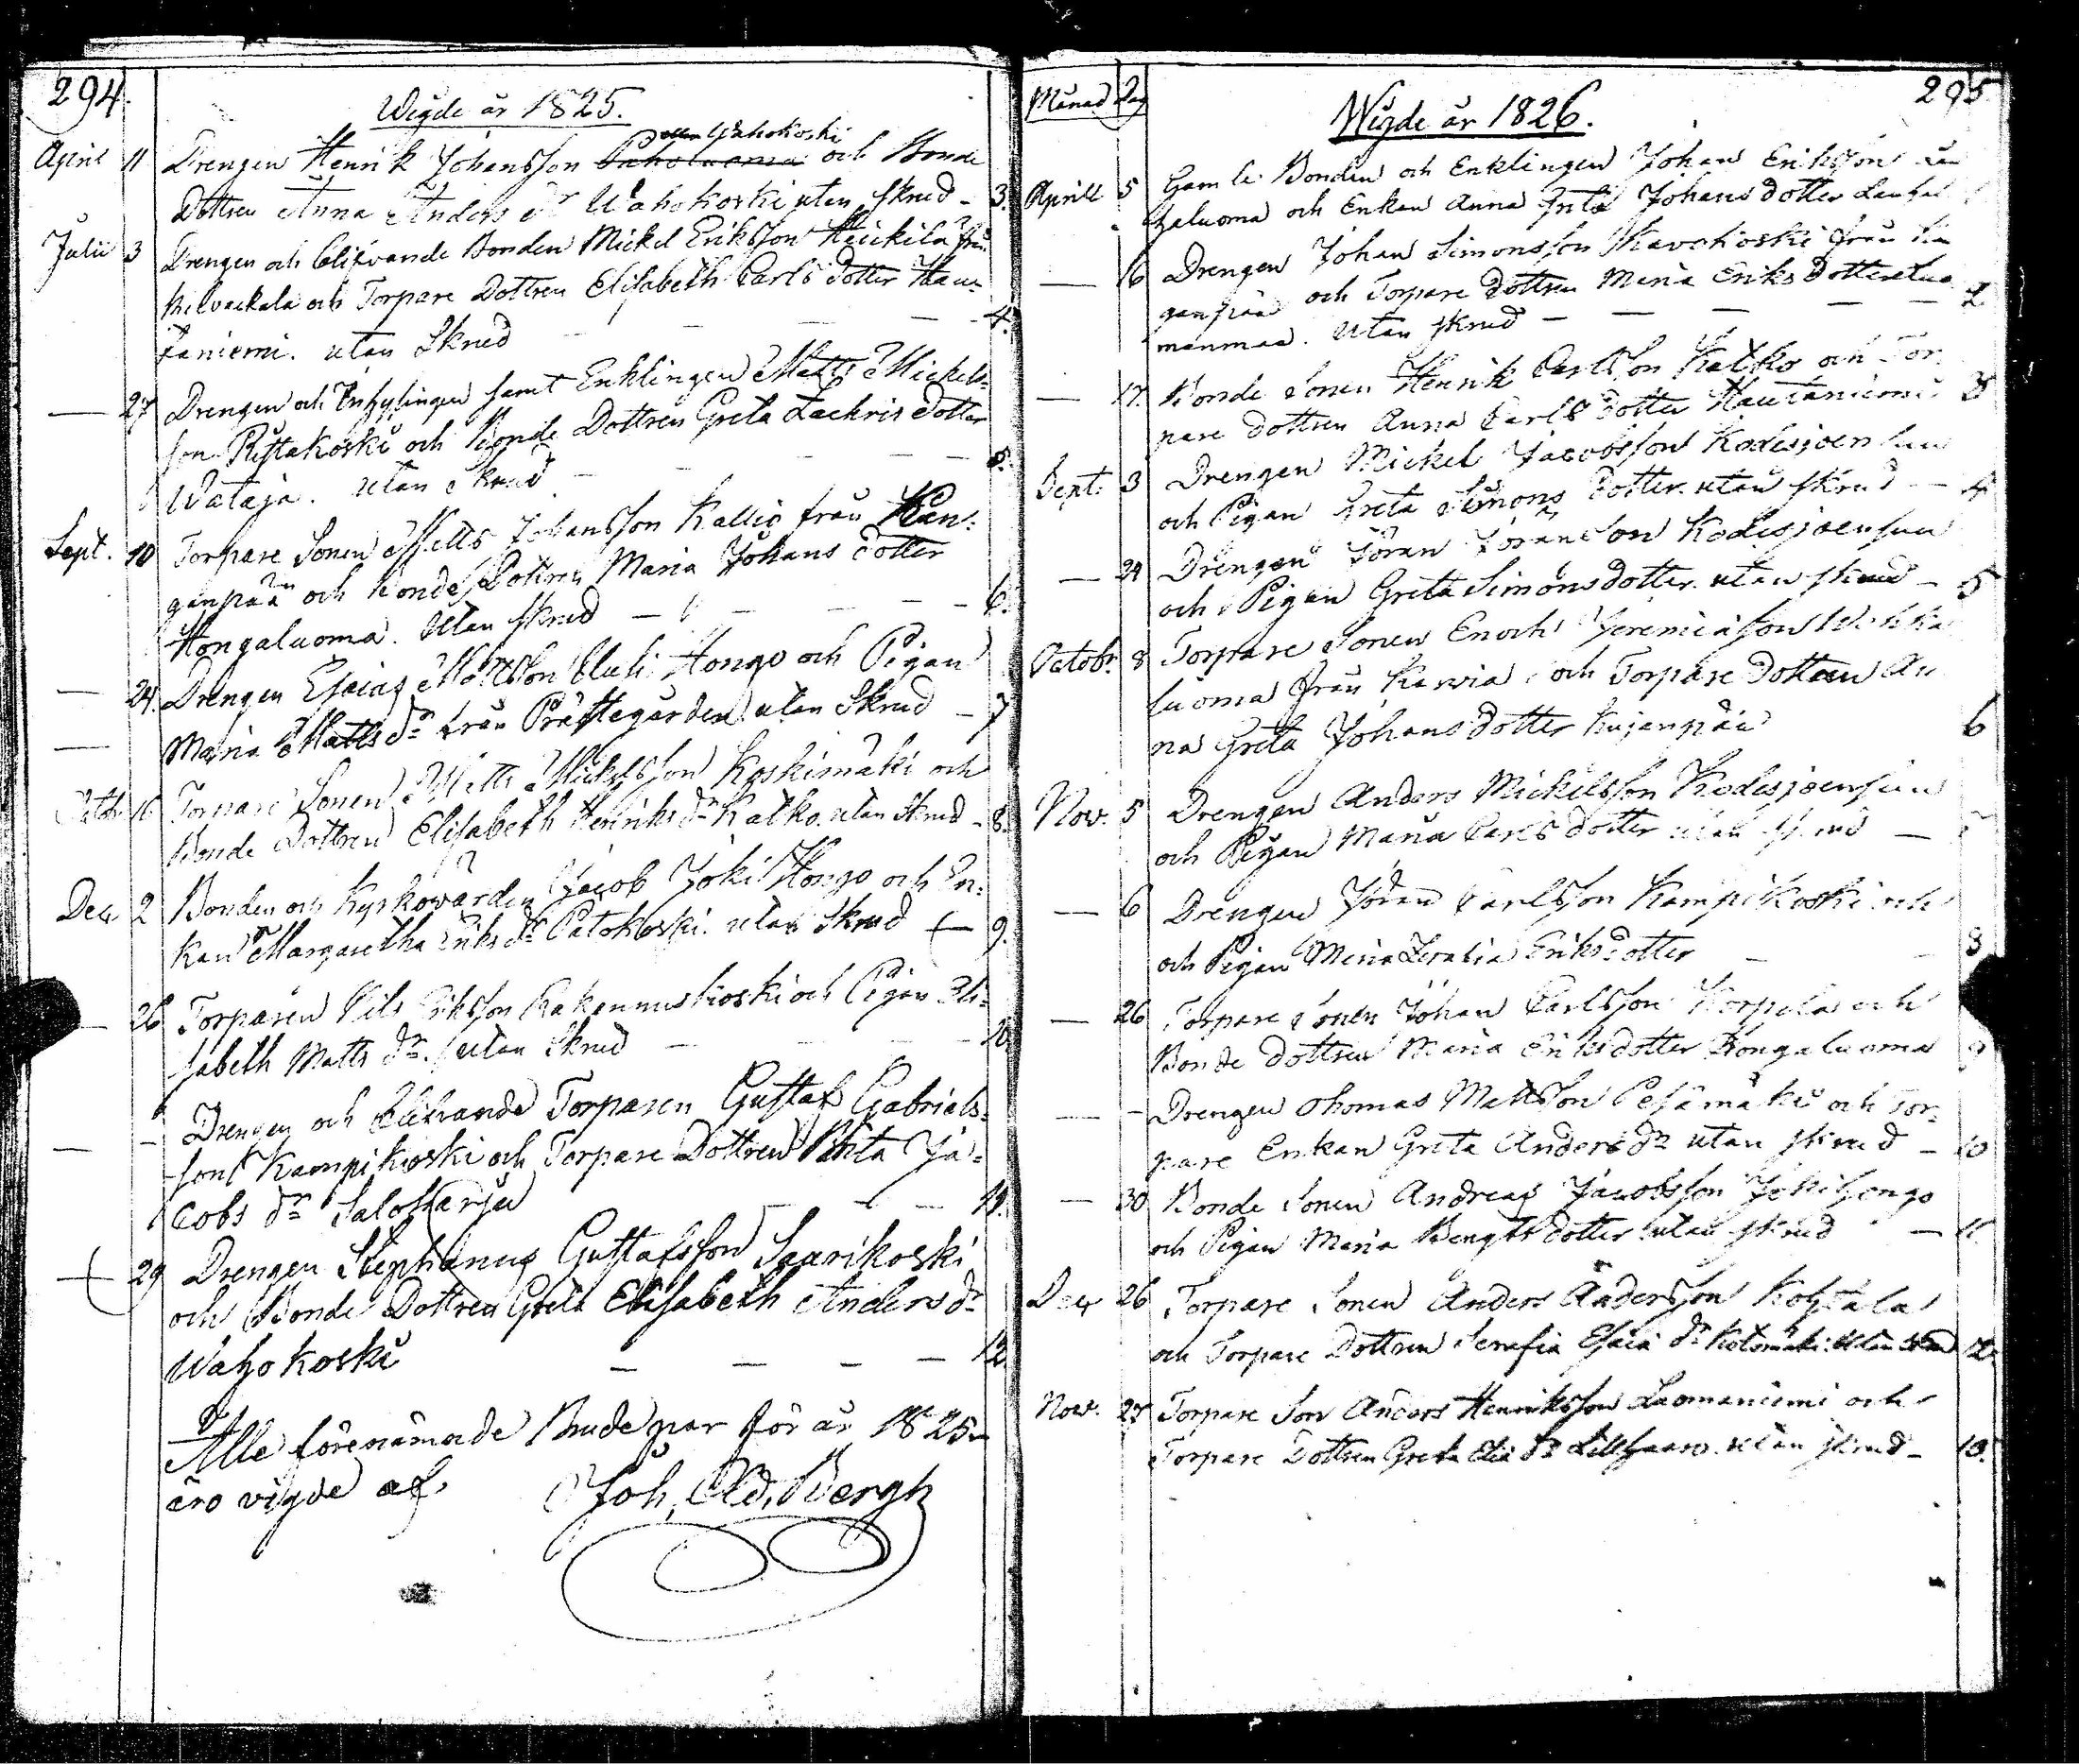 294.
Wigde år 1825.
April 11 Drengen Henrik Johansson Wahokoski och Bonde
Dottren Anna Anders dr Wahokoski utan skrud - 3.
Julii 3 Drengen och blifvande Bonden Mickel Eriksson Heickilä från
Kilvackala och Torpare Dottren Elisabeth Carls dotter Hau-
taniemi. utan Skrud - - - - 4.
— 27 Drengen och Inhysingen samt Enklingen Matts Mickels-
son Ristakoski och Bonde Dottren Greta Zachris dotter
Wataja. utan Skrud - - - - 5.
Sept. 10 Torpare Sonen Matts Johansson Kallio från Kan-
ganpää och Bonde Dottren Maria Johans dotter
Hongaluoma. utan skrud - - - - 6.
— 24. Drengen Esaias Mattsson Hongo och Pigan
— Maria Matts dr från Prästegården utan Skrud - 7
Octob. 16 Torpare Sonen Matts Mickelsson Koskimäki och
Bonde Dottren Elisabeth Henriks dr Katko utan Skrud - 8.
Dec 2 Bonden och Kyrkowärden Jacob Joki Hongo och En-
kan Margaretha Eriks dr Patokoski. utan Skrud — 9.
— 26 Torparen Nils Eriksson Kakennuskoski och Pigan Eli-
sabeth Matts dr. utan Skrud - - - 10.
— - Drengen och blifvande Torparen Gustaf Gabriels-
son Kampikoski och Torpare Dottren Brita Ja-
cobs dr Saloharju - - - 11.
— 29 Drengen Stephanus Gustafsson Saarikoski
och Bonde Dottren Greta Elisabeth Anders dr
Wahokoski — — — — 12
Alle förenämnde Brudepar för år 1825
äro vigde af. Joh. Ad. Bergh
Månad Dag
Wigde år 1826.
295
Aprill 5 Gamle Bonden och Enklingen Johan Eriksson
haluoma och Enkan Anna Johans dotter
— 16 Drengen Johan Simonsson Kavokoski från Kan
ganpää och Torpare dottren Maria Eriks Dotter Luo
manmaa. utan skrud — — — — 2.
— 17. Bonde Sonen Henrik Carlsson Katko och Tor
pare dottren Anna Carls dotter Hautaniemi 3
Sept. 3 Drengen Mickel Jacobsson Kodesjoensuu
och Pigan Greta Simons dotter utan skrud — 4
— 24 Drengen Jöran Jöransson Kodesjoensuu
och Pigan Greta Simons dotter utan skrud - 5
Octobr. 8 Torpare Sonen Enoch Jeremiasson
luoma från Karvia och Torpare Dottren An
na Greta Johans dotter Kujanpää 6
Nov. 5 Drengen Anders Mickelsson Kodesjoensuu
och Pigan Maria Carls dotter utan skrud —
— 6 Drengen Jöran Carlsson Kampikoski och
och Pigan Maria Serafia Eriks dotter - - 8
— 26 Torpare Sonen Johan Carlsson Korpela och
Bonde dottren Maria Eriks dotter Hongaluoma 9
— - Drengen Thomas Mattsson Pesämäki och Tor-
pare Enkan Greta Anders dr utan skrud - 10
— 30 Bonde Sonen Andreas Jacobsson Jokihongo
och Pigan Maria Bengts dotter utan skrud — 11
Decr 26 Torpare Sonen Anders Andersson
och Torpare Dottren Serafia Esaiæ dr Kotomäki. utan skrud 12.
Nov. 27 Torpare Son Anders Henriksson Luomaniemi och
Torpare Dottren Greta Eliæ dr Lillhaaro. utan skrud - 13.